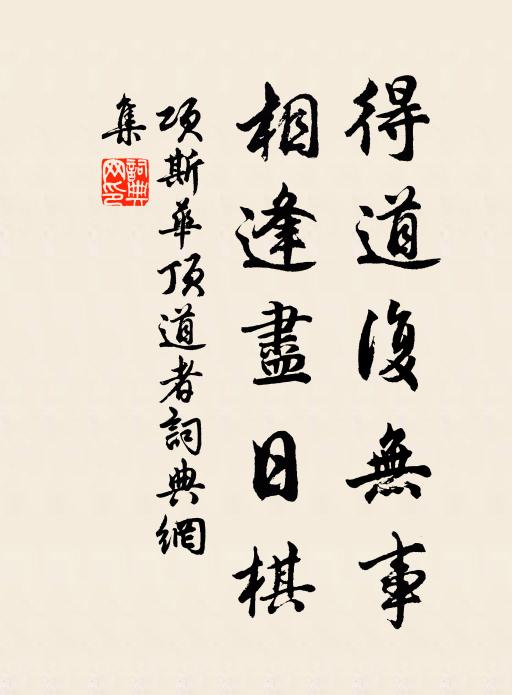 得道復無事
相逢盡日棋
項斯華頂道者詞典網
集
詞典
网印